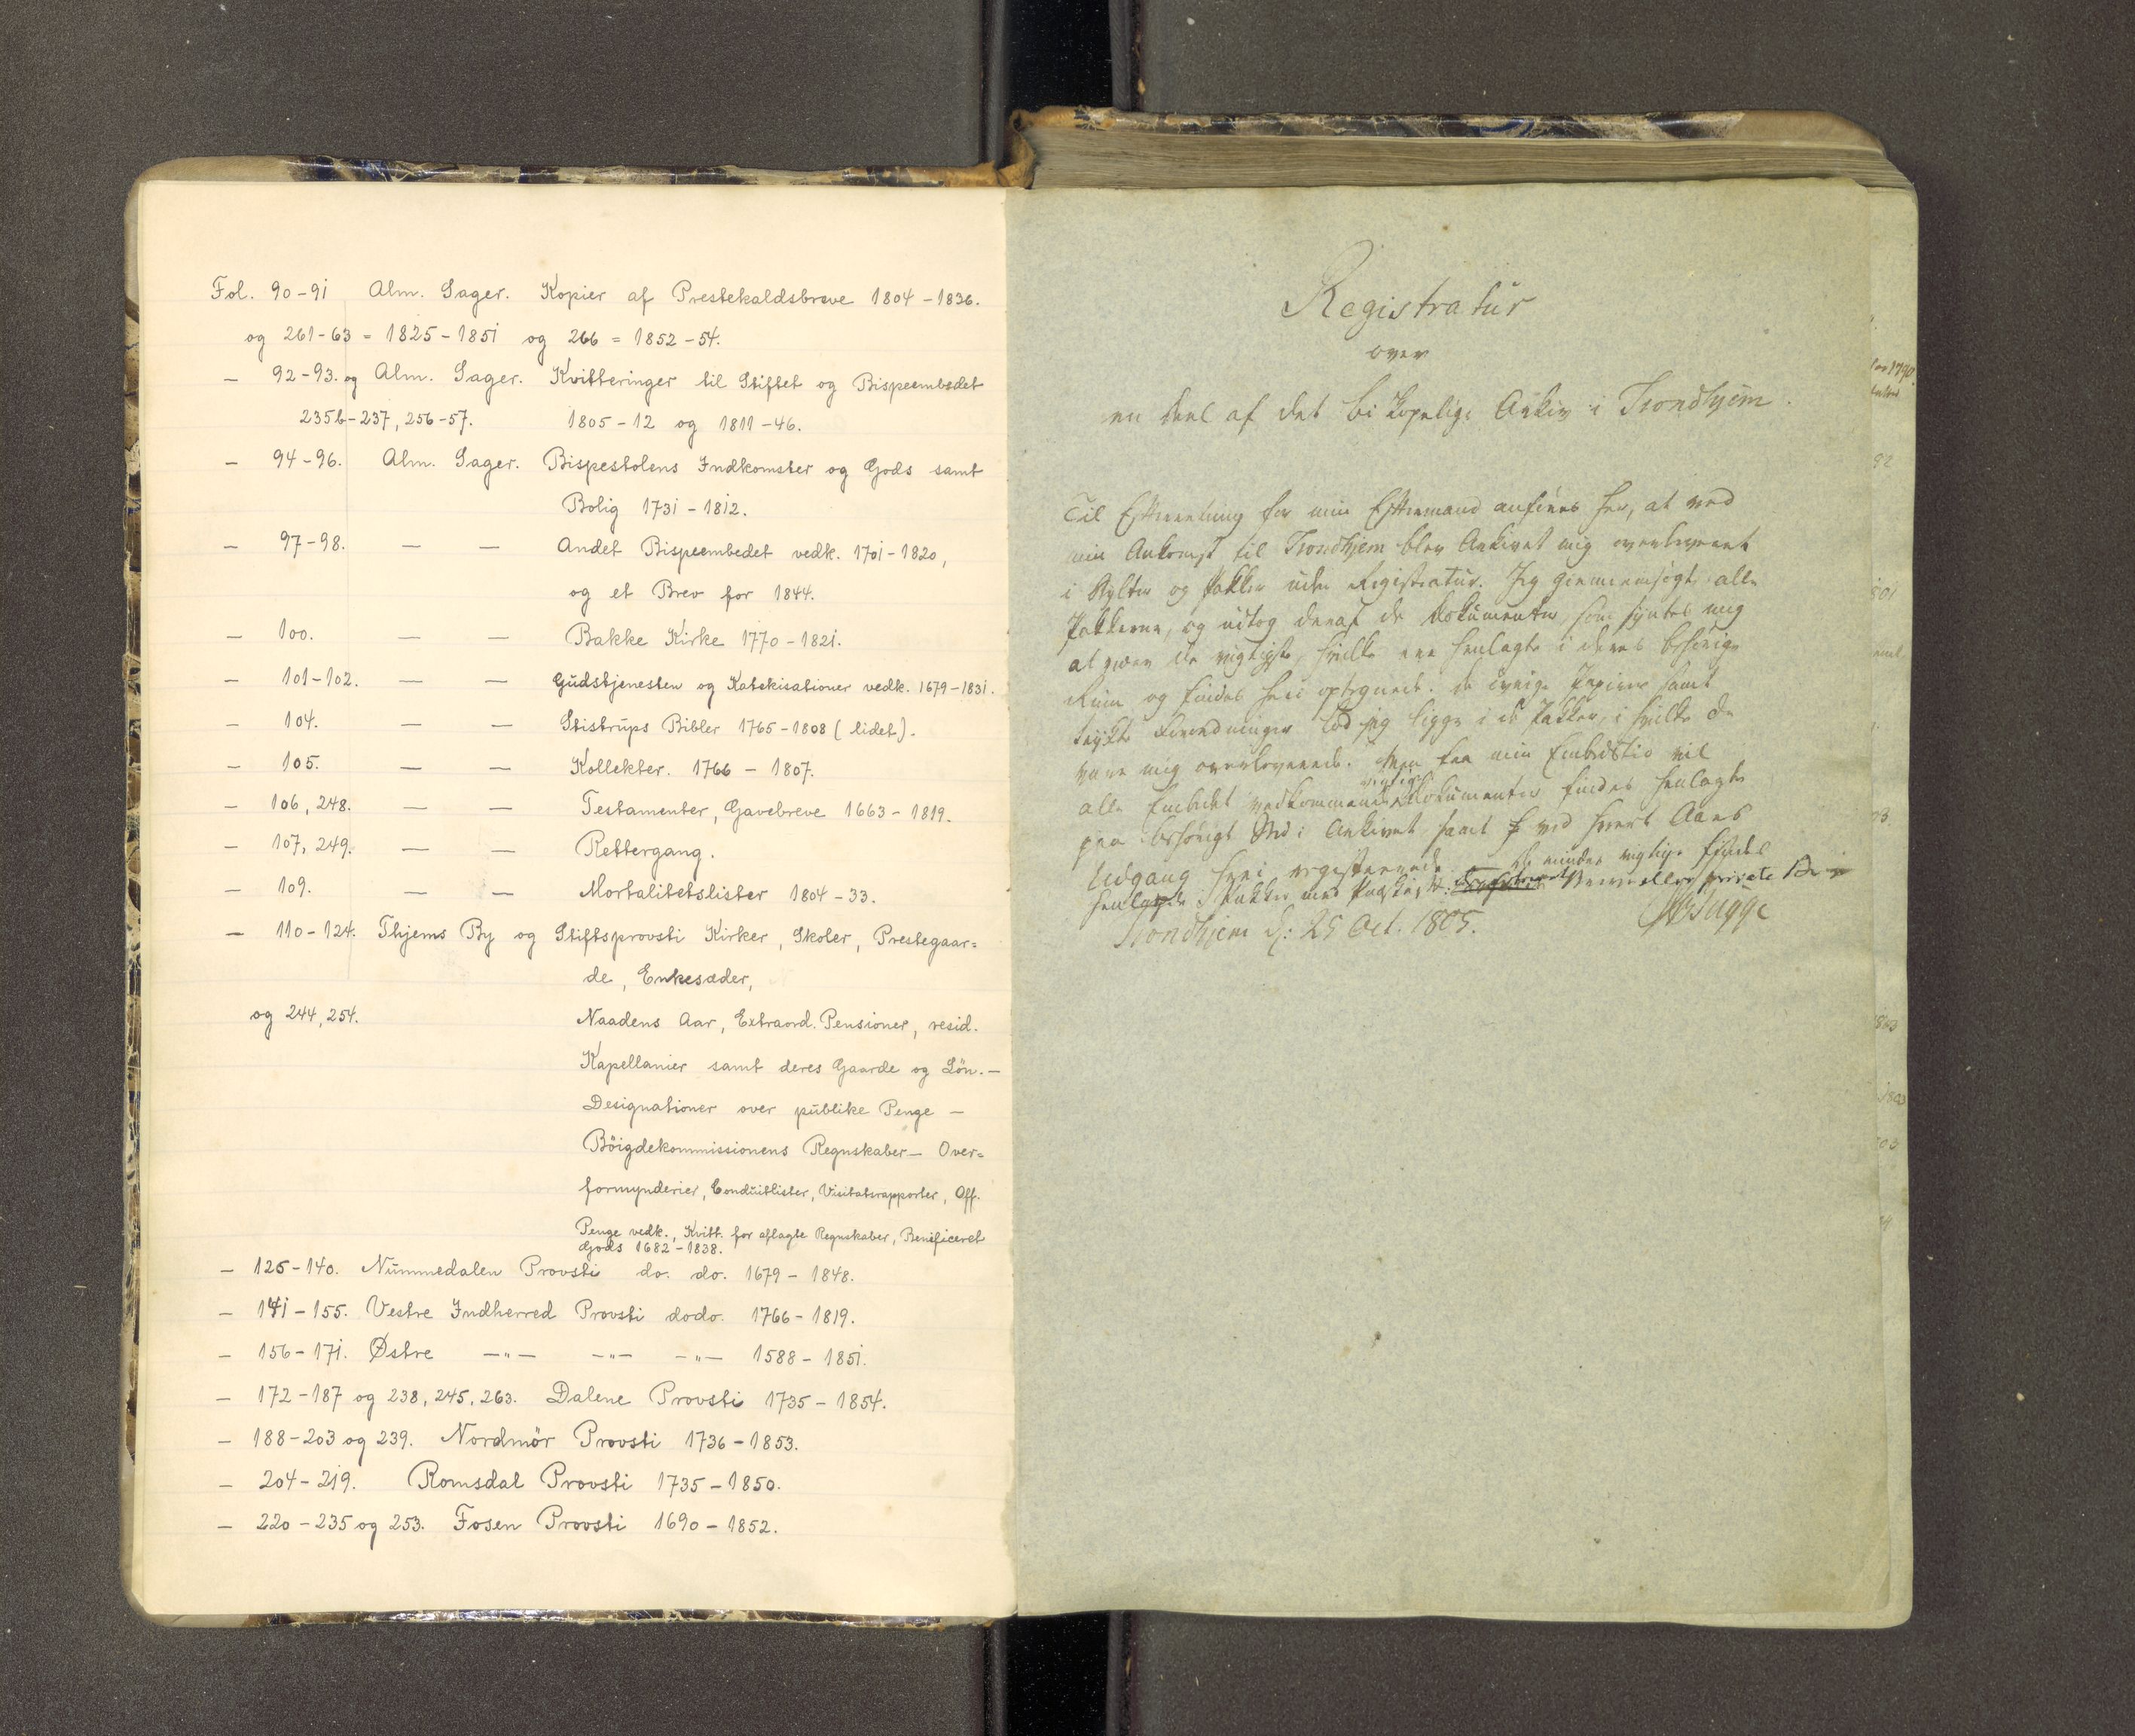 Fol. 90-91 Alm. Sager. Kopier af Prestekaldsbreve 1804-1836.
og 261-63 = 1825-1851 og 266 = 1852-54.
- 92-93. og Alm. Sager. Kvitteringer til Stiftet og Bispeembedet
235b-237, 256-57. 1805-12 og 1811-46.
- 94-96. Alm. Sager. Bispestolens Indkomster og Gods samt
Bolig 1731-1812.
- 97-98. — — Andet Bispeembedet vedk. 1701-1820,
og et Brev for 1844.
- 100. — — Bakke Kirke 1770-1821.
- 101-102. — — Gudstjenesten og Katekisationer vedk. 1679-1831.
- 104. — — Stistrups Bibler 1765-1808 (lidet).
- 105. — — Kollekter. 1766 - 1807.
- 106, 248. — — Testamenter, Gavebreve 1663-1819.
- 107, 249. — — Rettergang.
- 109. — — Mortalitetslister 1804-33.
- 110-124. Thjems By og Stiftsprovsti Kirker, Skoler, Prestegaar=
de, Enkesæder,
og 244, 254. Naadens Aar, Extraord. Pensioner, resid.
Kapellanier samt deres Gaarde og Lön. -
Designationer over publike Penge -
Böigdekommissionens Regnskaber - Over=
formynderier, Conduitlister, Visitatsrapporter, Off.
Penge vedk., Kvitt. for aflagte Regnskaber, Beneficeret
Gods 1682-1838.
- 125-140. Nummedalen Provsti do. do. 1679-1848.
- 141-155. Vestre Indherred Provsti dodo. 1766-1819.
- 156-171. Østre -"- -"- -"- 1588-1851.
- 172-187 og 238, 245, 263. Dalene Provsti 1735-1854.
- 188-203 og 239. Nordmör Provsti 1736-1853.
- 204-219. Romsdal Provsti 1735-1850.
- 220-235 og 253. Fosen Provsti 1690-1852.
Registratur
over
en Deel af det biskopelige Arkiv i Trondhjem.
Til Efterretning for min Eftermand anføres her, at ved
min Ankomst til Trondhjem blev Arkivet mig overleveret
i Hylder og Pakker uden Registratur. Jeg giennemsøgte alle
Pakkerne, og udtog deraf de Dokumenter, som syntes mig
at være de vigtigste, hvilke ere henlagte i deres behørige
Rum og findes heri optegnede. De øvrige Papirer samt
trykte Forordninger lod jeg ligge i de Pakker, i hvilke de
vare mig overleverede. Men fra min Embedstid vil
alle Embedet vedkommende vigtige Dokumenter findes henlagte
paa behørigt Sted i Arkivet samt ved hvert Aars
Udgang heri registrerede de mindre vigtige findes
henlagde i Pakker med Paaskrivt: Breve eller private
Trondhjem d: 25 Oct. 1805. Bugge